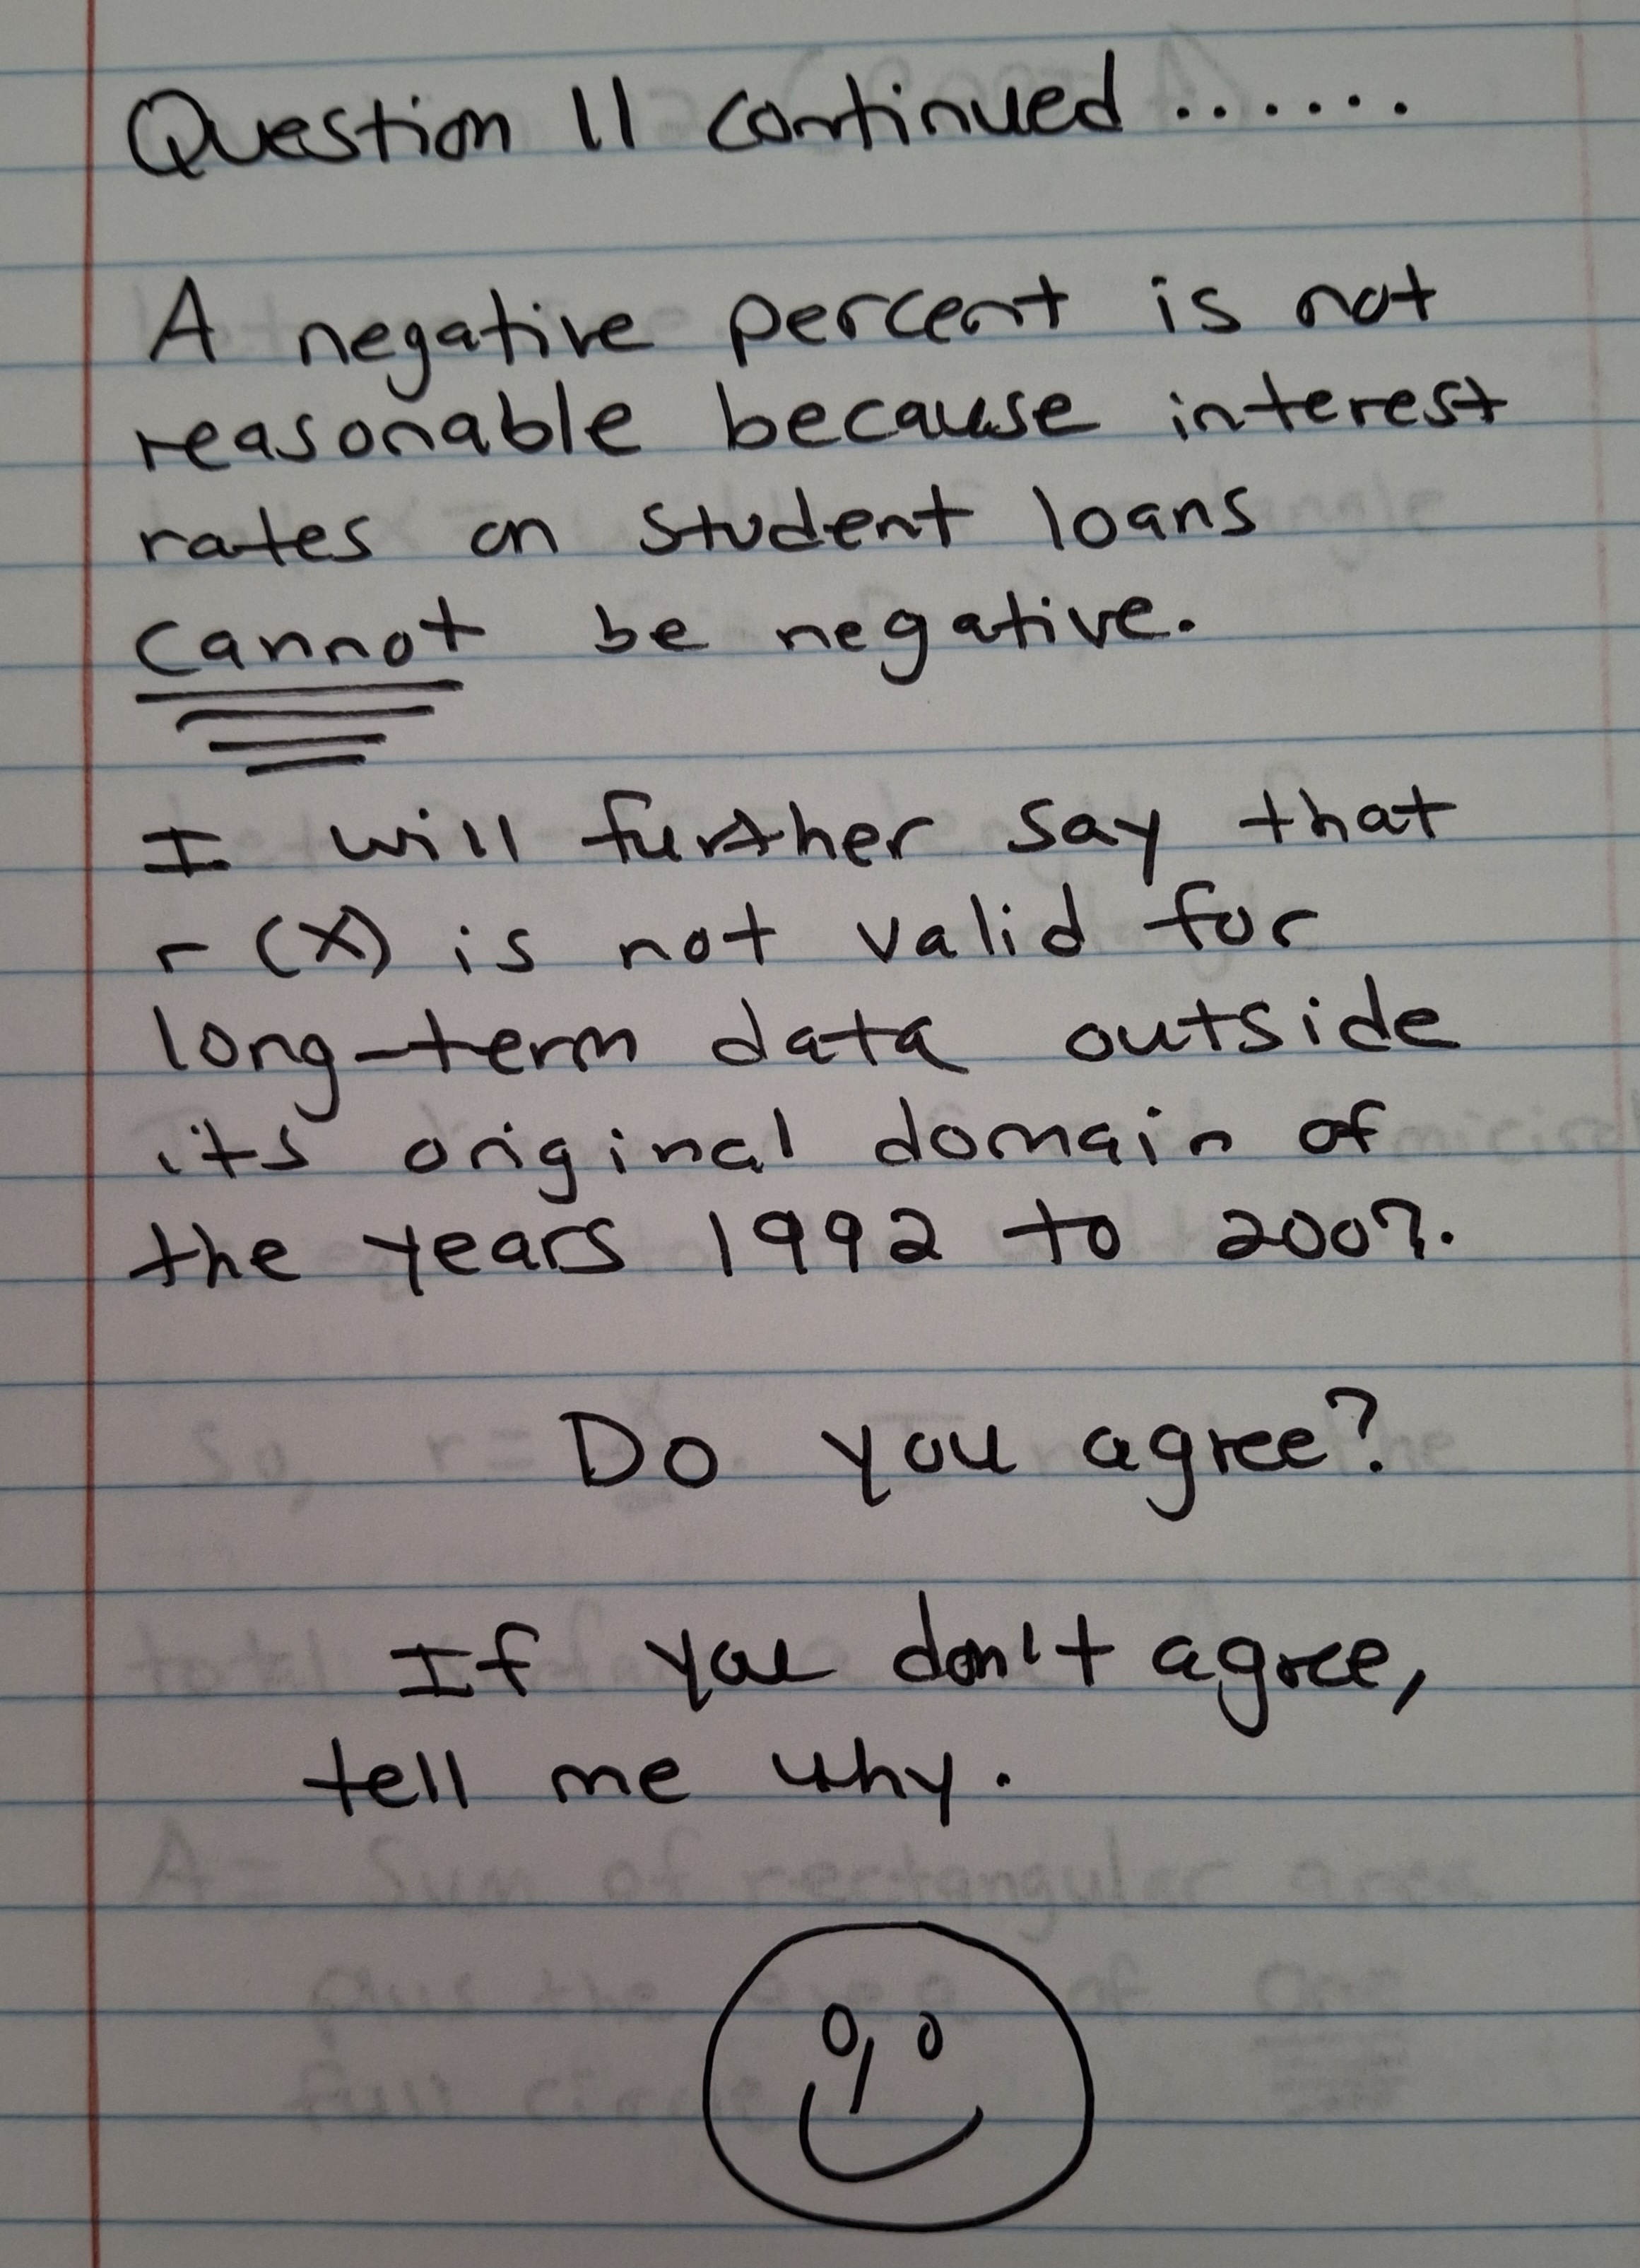 Question 11 continued.......
A negative percent is not
reasonable because interest
rates on student loans
cannot be negative.
I will further say that
r(x) is not valid for
long-term data outside
its original domain of
the years 1992 to 2007.
Do you agree?
If you don't agree,
tell me why.